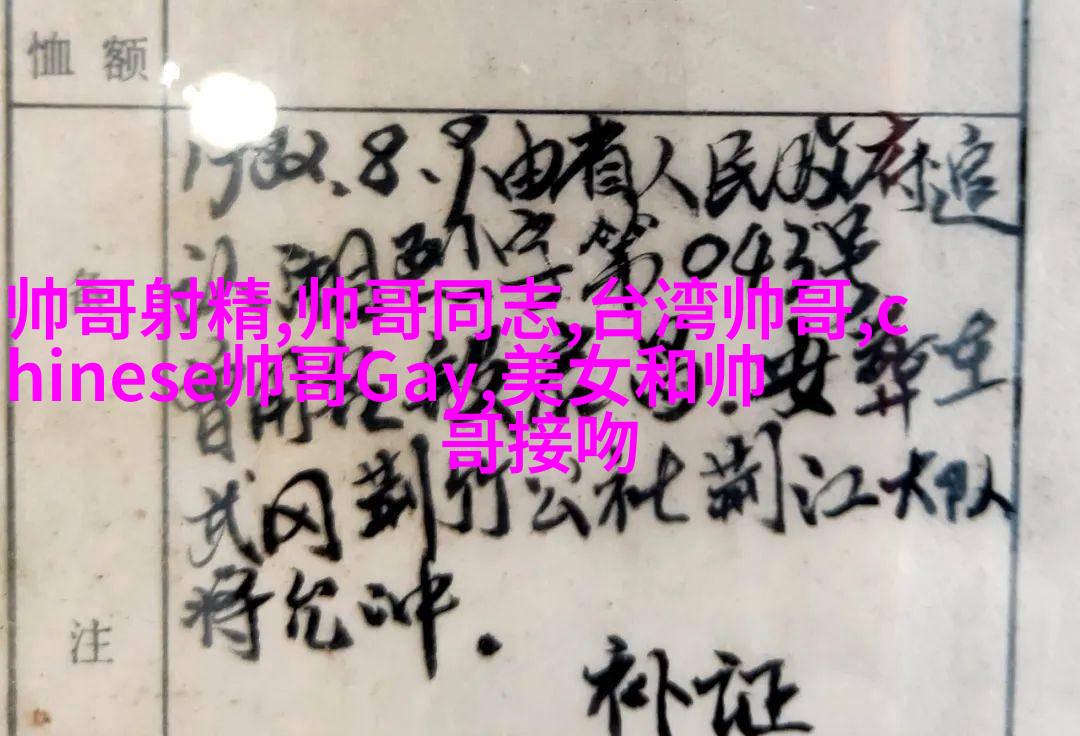 恤额
1982.8.9由省人民政府追
认,湘政字第043号
备
帅哥射精,帅哥同志,台湾帅哥,c
hinese帅哥Gay,美女和帅
哥接吻
安葬在
武冈荆竹公社荆江大队
将允冲.
注
补证